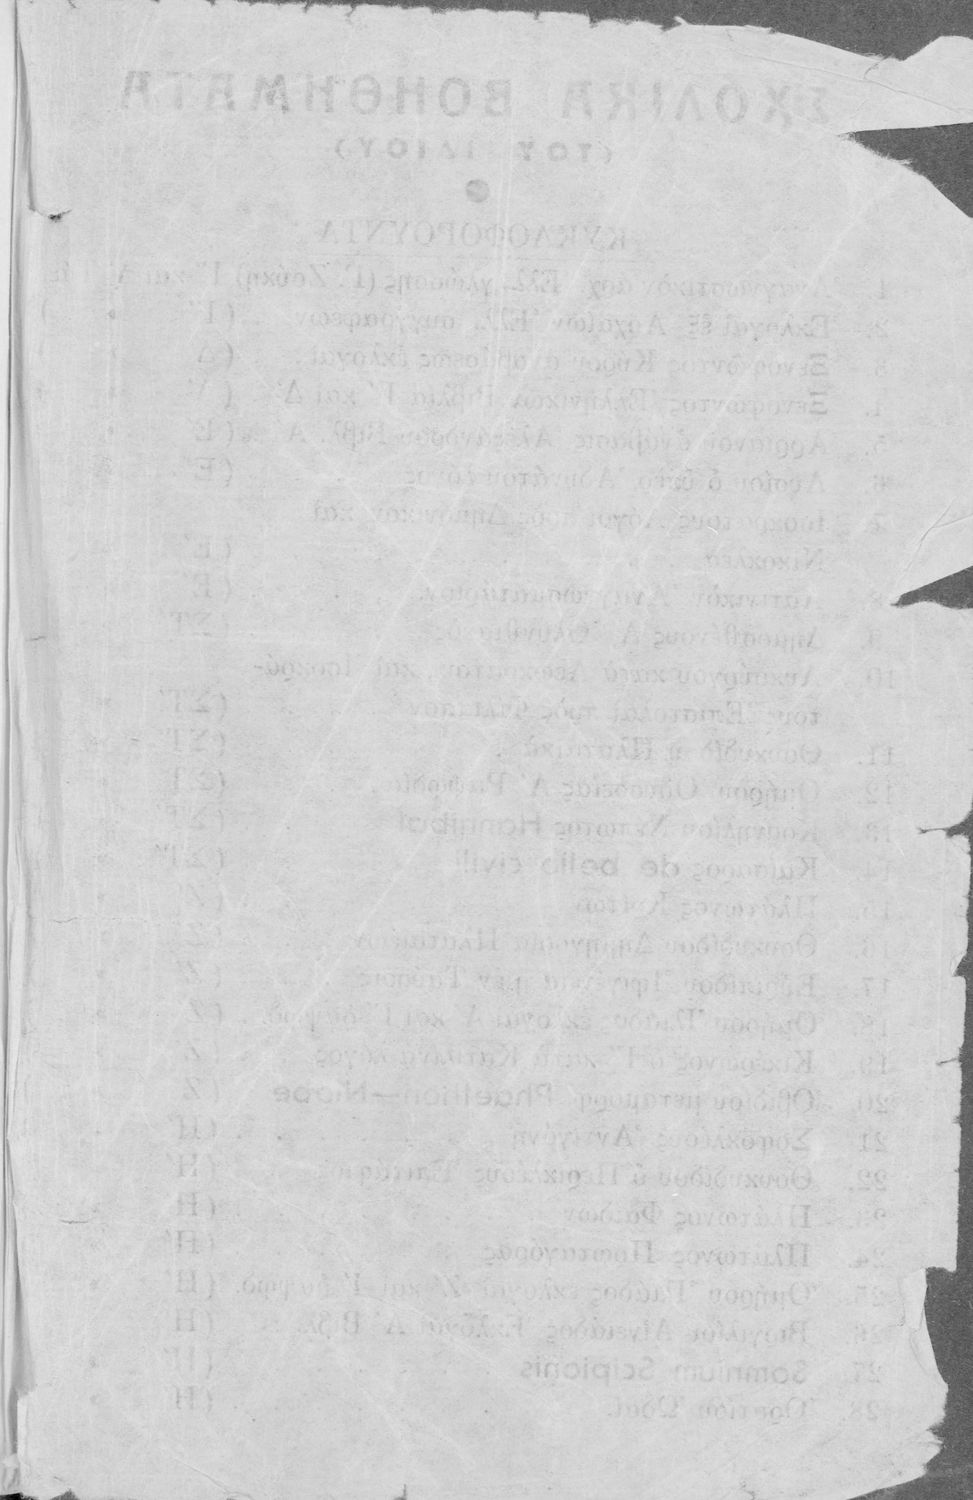 ΣΧΟΛΙΚΑ ΒΟΗΘΗΜΑΤΑ
(ΤΟΥ ΙΔΙΟΥ)
ΚΥΚΛΟΦΟΡΟΥΝΤΑ
1. Ἀναγνωστικὸν ἀρχ. Ἑλλ. γλώσσης (Γ. Ζούκη) Γ′ καὶ
2. Ἐκλογαὶ ἐξ Ἀρχαίων Ἑλλ. συγγραφέων (Γ′
3. Ξενοφῶντος Κύρου ἀναβάσεως ἐκλογαὶ (Δ′
4. Ξενοφῶντος Ἑλληνικῶν Βιβλία Γ′ καὶ Δ′
5. Ἀρριανοῦ ἀνάβασις Ἀλεξάνδρου Βιβλ. Α (Ε′
6. Λυσίου ὁ ὑπὲρ Ἀδυνάτου λόγος (Ε′
7. Ἰσοκράτους Λόγοι πρὸς Δημόνικον καὶ
Νικοκλέα (Ε′
8. Λατινικὸν Ἀναγνωσματάριον (Ε′
9. Δημοσθένους Α′ Ὀλυνθιακὸς (ΣΤ′
10. Λυκούργου κατὰ Λεωκράτους καὶ Ἰσοκρά-
τους Ἐπιστολαὶ πρὸς Φίλιππον (ΣΤ′
11. Θουκυδίδου Πλαταικὰ (ΣΤ′
12. Ὁμήρου Ὀδυσσείας Α′ Ραψωδία (ΣΤ′
13. Κορνηλίου Νέπωτος Hannibal (ΣΤ′
14. Καίσαρος de bello civili (ΣΤ′
15. Πλάτωνος Κρίτων (Ζ′
16. Θουκυδίδου Δημηγορία Πλαταιέων (Ζ′
17. Εὐριπίδου Ἰφιγένεια ἡ ἐν Ταύροις (Ζ′
18. Ὁμήρου Ἰλιάδος ἐκλογαὶ Α′ καὶ Γ′ ῥαψωδ. (Ζ′
19. Κικέρωνος ὁ Γ′ κατὰ Κατιλίνα λόγος (Ζ′
20. Ὀβιδίου μεταμορφ. Phaethon—Niobe (Ζ′
21. Σοφοκλέους Ἀντιγόνη (Η′
22. Θουκυδίδου ὁ Περικλέους Ἐπιτάφιος (Η′
23. Πλάτωνος Φαίδων (Η′
24. Πλάτωνος Πρωταγόρας (Η′
25. Ὁμήρου Ἰλιάδος ἐκλογαὶ Ζ′ καὶ Ι′ ῥαψωδ. (Η′
26. Βιργιλίου Αἰνειάδος Ἐκλογαὶ Α′ Βιβλ. (Η′
27. Somnium Scipionis (Η′
28. Ὁρατίου Ὠδαί. (Η′